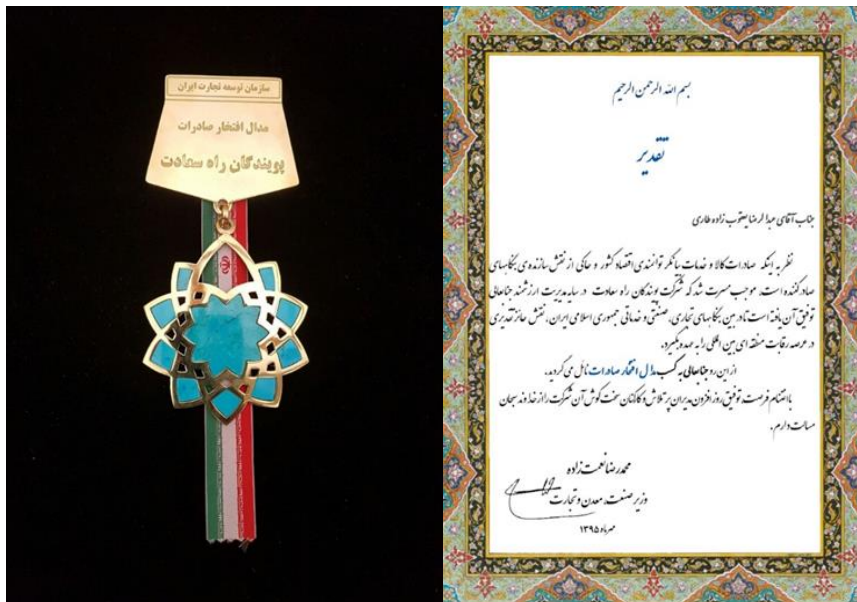 سازمان توسعه تجارت ایران
مدال افتخار صادرات
پویندگان راه سعادت
بسم الله الرحمن الرحیم
تقدیر
جناب آقای عبدالرضا یعقوب زاده طاری
نظر به اینکه صادرات کالا و خدمات بیانگر توانمندی اقتصاد کشور و حاکی از نقش سازنده ی بنگاههای
صادرکننده است، موجب مسرت شد که شرکت پویندگان راه سعادت در سایه مدیریت ارزشمند جنابعالی
توفیق آن یافته است تا در بین بنگاههای تجاری، صنعتی و خدماتی جمهوری اسلامی ایران، نقش حائز تقدیری
در عرصه رقابت منطقه ای بین المللی را به عهده بگیرد.
از این رو جنابعالی به کسب مدال افتخار صادرات نائل می گردید.
با اغتنام فرصت، توفیق روزافزون مدیران پر تلاش و کارکنان سخت کوش آن شرکت را از خداوند سبحان
مسالت دارم.
محمدرضا نعمت زاده
وزیر صنعت، معدن و تجارت
مهرماه ۱۳۹۵